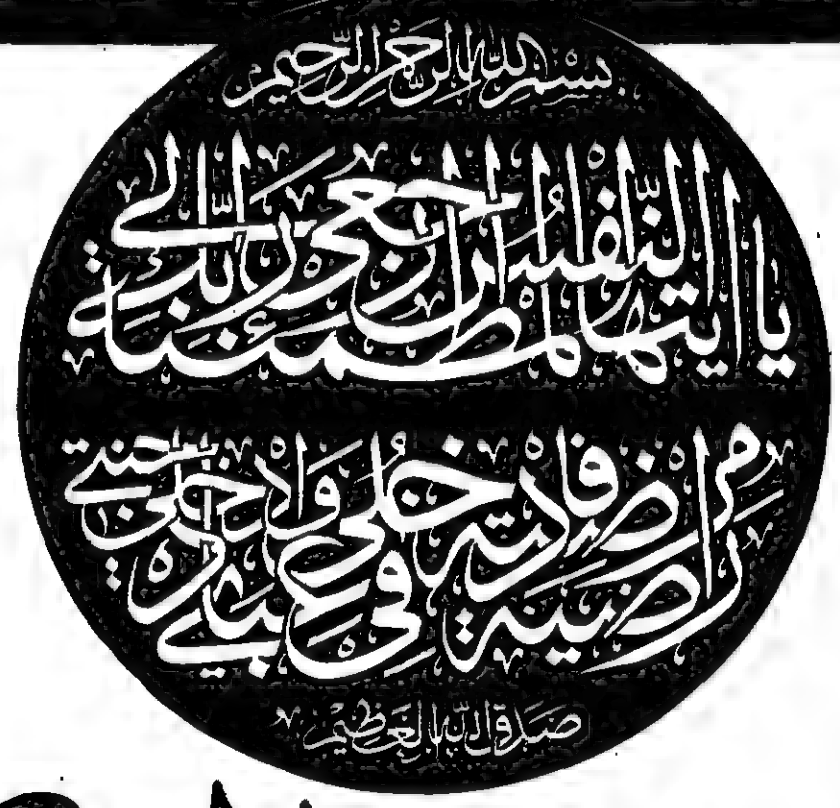 بسم الله الرحمن الرحيم
يا ايتها النفس المطمئنة ارجعي الى ربك
راضية مرضية فادخلي في عبادي وادخلي جنتي
صدق الله العظيم